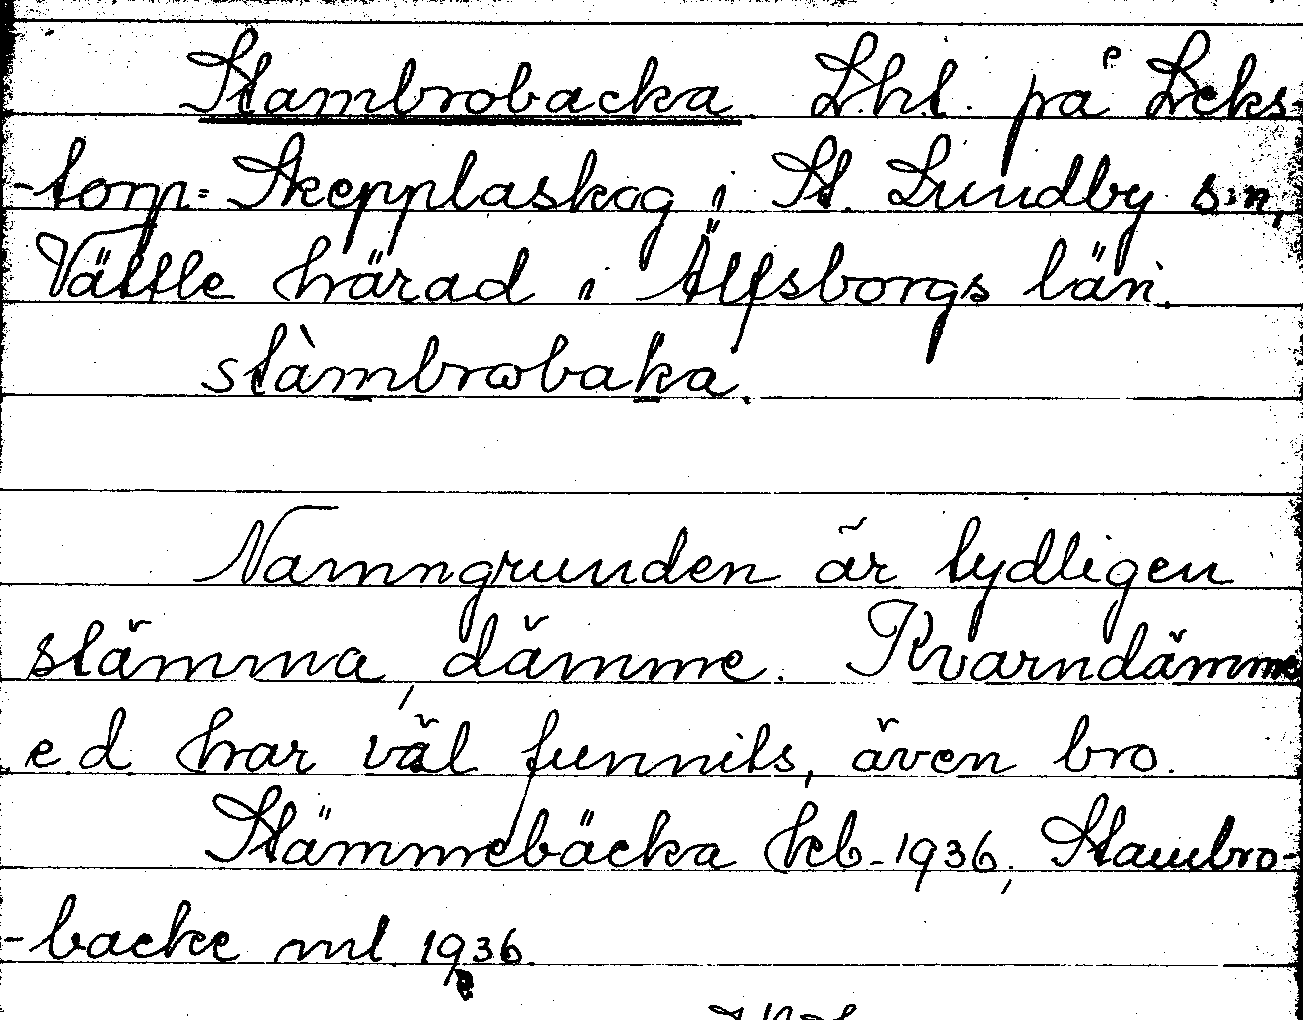 Stambrobacka L.h.l. på Leks-
-torp= Skepplaskog i St. Lundby s:n,
Vättle härad i Älfsborgs län.
stàmbrωbaka.
Namngrunden är tydligen
stämma, dämme. Kvarndämme
e.d har väl funnits, även bro.
Stämmebäcka kb-1936, Stambro-
-backe ml 1936.